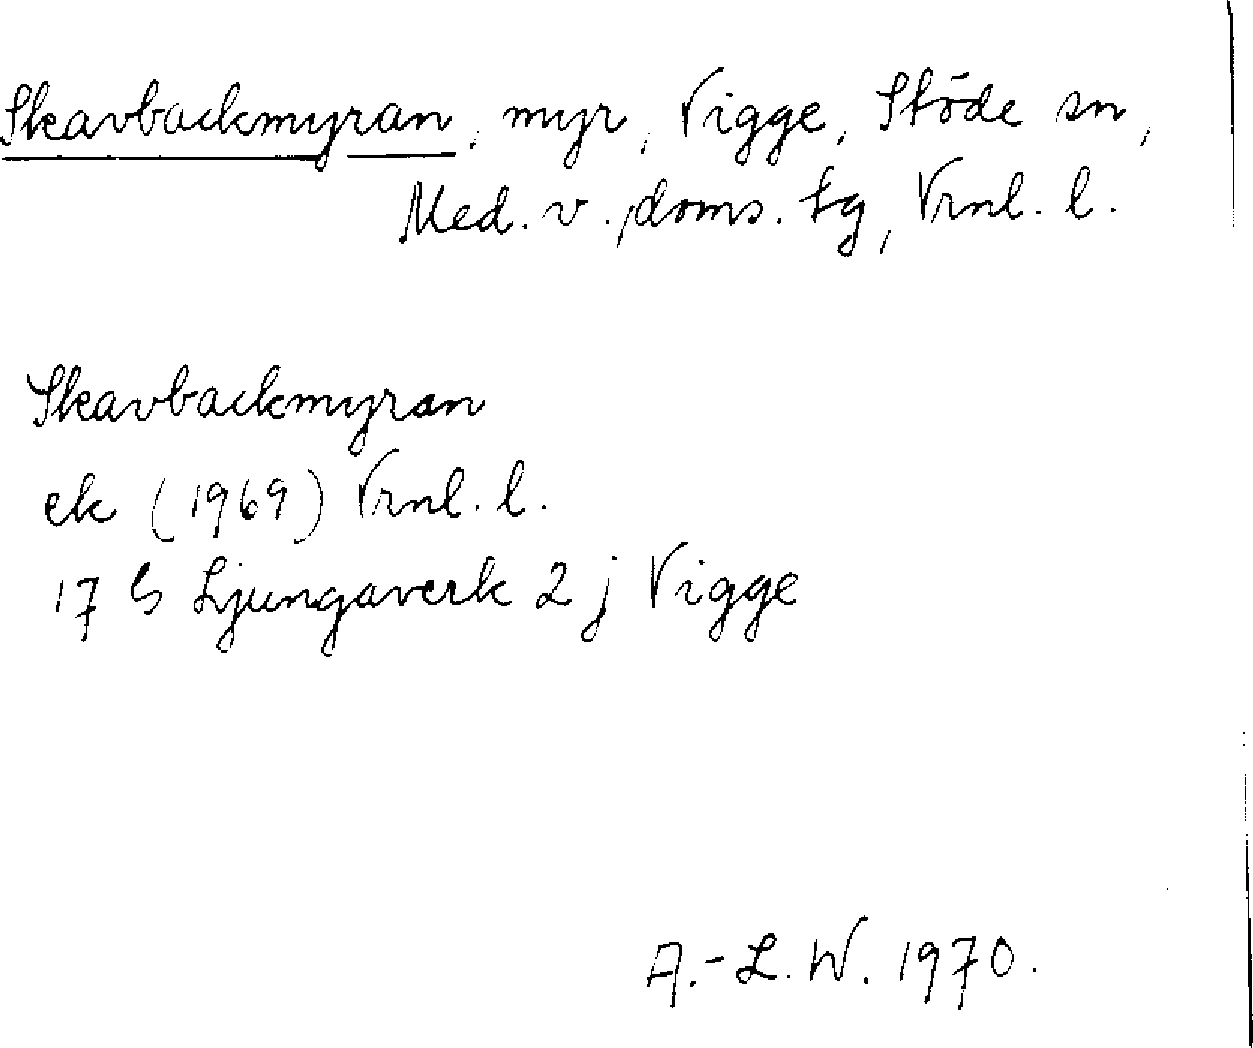 Skavbackmyran, myr, Vigge, Stöde sn,
Med. v. doms. tg, Vrnl. l.
Skavbackmyran
ek (1969) Vrnl. l.
17 G Ljungaverk 2 j Vigge
A.-L. W. 1970.